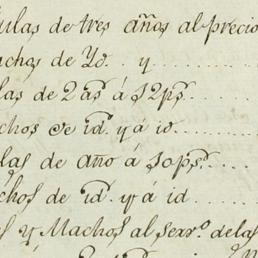 ulas de tres años al precio
uchos de Yd. . y . . . . . . .
las de 2 as á 52 ps. . . . . .
chos de id. y á id. . . . . . .
las de año á 50 ps. . . . . . .
chos de id. y á id . . . . . .
s y Machos al serro. de las